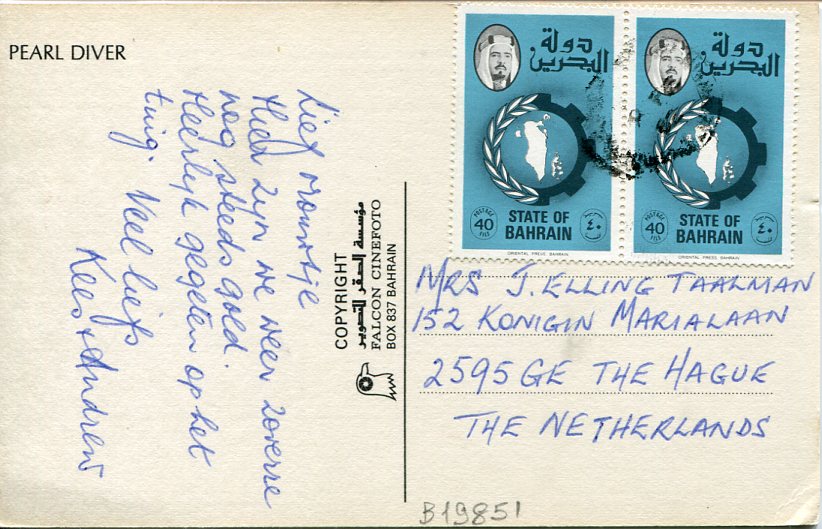 PEARL DIVER
Lief Mouwtje
Hier zyn we weer zoverre
nog steeds gold.
Heerlyk gegeten op het
ting. Veel liefs
Kees + Andrew
COPYRIGHT
مؤسسة الصقر للتصوير
FALCON CINEFOTO
BOX 837 BAHRAIN
دولة
البحرين
POSTAGE
40
FILS
STATE OF
BAHRAIN
٤٠
ORIENTAL PRESS, BAHRAIN
دولة
البحرين
POSTAGE
40
FILS
STATE OF
BAHRAIN
٤٠
ORIENTAL PRESS, BAHRAIN
MRS J. ELLING TAALMAN
152 KONIGIN MARIALAAN
2595 GE THE HAGUE
THE NETHERLANDS
B19851